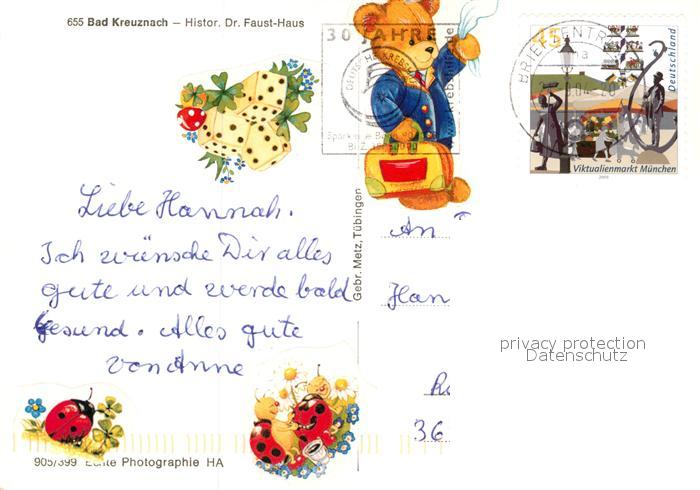 655 Bad Kreuznach – Histor. Dr. Faust-Haus
30 JAHRE
DEUTSCHE KREBSHILFE
BRIEFZENTRUM
45
Deutschland
Viktualienmarkt München
2003
Gebr. Metz, Tübingen
Liebe Hannah.
Ich wünsche Dir alles
gute und werde bald
Gesund. Alles gute
von Anne
An
Han
36
privacy protection
Datenschutz
905/399 Echte Photographie HA